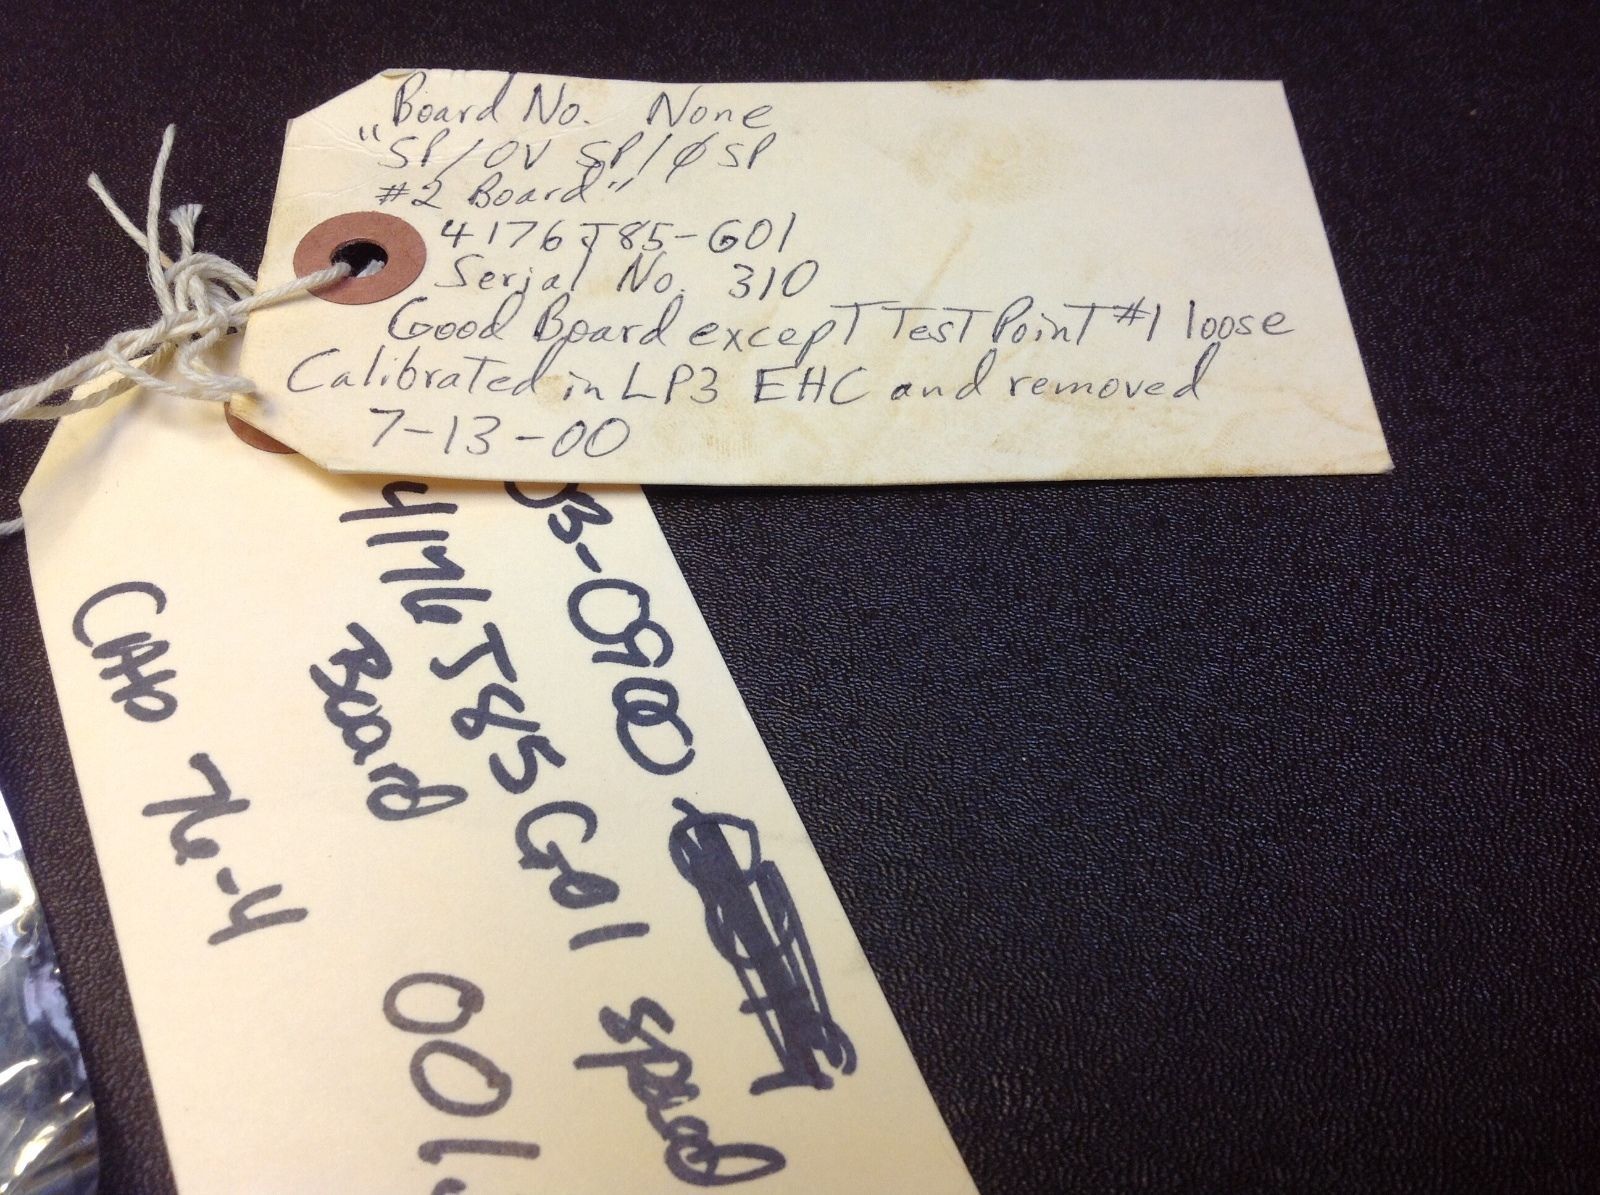 Board No. None
"SP/OV SP/Ø SP
#2 Board"
4176J85-G01
Serial No. 310
Good Board except Test Point #1 loose
Calibrated in LP3 EHC and removed
7-13-00
3-0900
4176J85G01 Speed
Board 001
CAB 76-4